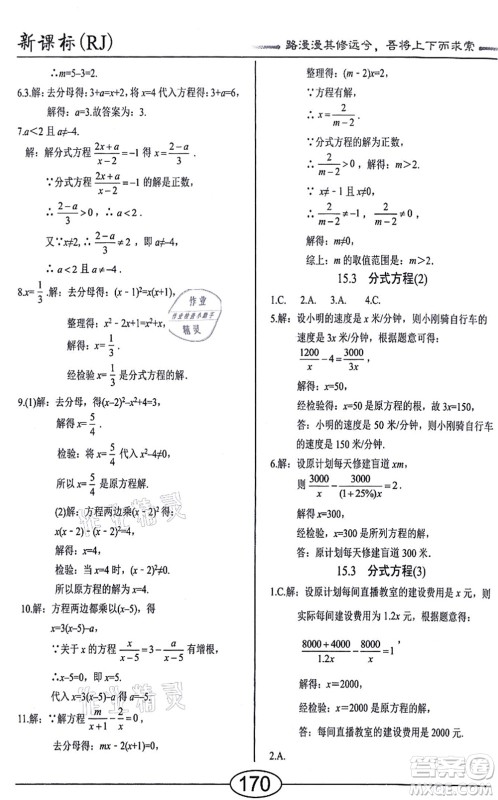 新课标(RJ)
路漫漫其修远兮，吾将上下而求索
∴m=5-3=2.
6.3.解：去分母得：3+a=x+2，将 x=4 代入方程得：3+a=6，
解得：a=3.故答案为：3.
7.a＜2 且 a≠-4.
解：解分式方程 (2x+a)/(x-2)=-1 得 x=(2-a)/3.
∵分式方程 (2x+a)/(x-2)=-1 的解是正数，
∴(2-a)/3＞0，∴a＜2.
又∵x≠2，∴(2-a)/3≠2，即 a≠-4，
∴a＜2 且 a≠-4.
8.x=1/3.解：去分母得：(x-1)²=x²+x，
整理得：x²-2x+1=x²+x，
解得：x=1/3，
经检验 x=1/3 是分式方程的解.
9.(1)解：去分母，得：(x-2)²-x²+4=3，
解得：x=5/4.
检验：将 x=5/4 代入 x²-4≠0，
所以 x=5/4 是原方程的解.
(2)解：方程两边乘(x-2)²得：
x(x-2)-(x-2)²=4，
解得：x=4，
检验：当 x=4 时，(x-2)²≠0.
所以原方程的解为 x=4.
10.解：方程两边都乘以(x-5)得
x=3(x-5)-a，
∵关于 x 的方程 x/(x-5)=3-a/(x-5)有增根，
∴x-5=0，∴x=5.
代入 x=3(x-5)-a 得 a=-5.
11.解：∵解方程 m/x+1/(x-1)=0，
去分母得：mx-2(x+1)=0，
整理得：(m-2)x=2，
∵方程有解，
∴x=2/(m-2)，
∵分式方程的解为正数，
∴2/(m-2)＞0，解得：m＞2，
∵x≠-1 且 x≠0，
∴2/(m-2)≠-1，2/(m-2)≠0，
解得：m≠0，
综上：m 的取值范围是：m＞2.
15.3 分式方程(2)
1.C. 2.A. 3.A. 4.C.
5.解：设小明的速度是 x 米/分钟，则小刚骑自行车的
速度是 3x 米/分钟，根据题意可得：
1200/x-4=3000/3x，
解得：x=50，
经检验得：x=50 是原方程的根，故 3x=150，
答：小明的速度是 50 米/分钟，小刚骑自行车的
速度是 150 米/分钟.
6.解：设原计划每天修建盲道 xm，
则 3000/x-3000/((1+25%)x)=2.
解得：x=300，
经检验，x=300 是所列方程的解，
答：原计划每天修建盲道 300 米.
15.3 分式方程(3)
1.C.解：设原计划每间直播教室的建设费用是 x 元，则
实际每间建设费用为 1.2x 元，根据题意得：
(8000+4000)/1.2x-8000/x=1，
解得：x=2000，
经检验：x=2000 是原方程的解，
答：每间直播教室的建设费用是 2000 元.
2.A.
170
作业
作业检查小帮手
精灵
作业精灵
作业精灵
答案圈
MXQE.COM